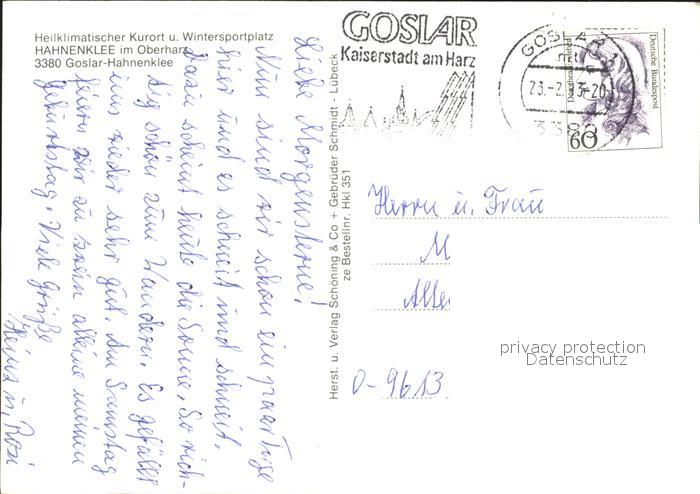 Heilklimatischer Kurort u. Wintersportplatz
HAHNENKLEE im Oberharz
3380 Goslar-Hahnenklee
GOSLAR
Kaiserstadt am Harz
GOSLAR
23.-2.93-20
3380
Deutsche Bundespost
60
Liebe Morgensterne!
Nun sind wir schon ein paar Tage
hier und es schneit und schneit.
Dazu scheint heute die Sonne. So rich-
tig schön zum Wandern. Es gefällt
uns wieder sehr gut. Am Samstag
feiern wir zu zwein alleine meinen
Geburtstag. Viele Grüße
Heinz u. Rosi
Herst. u. Verlag Schöning & Co + Gebrüder Schmidt - Lübeck
ze Bestellnr. Hkl 351
Herrn u. Frau
M
Alle
O-9613
privacy protection
Datenschutz